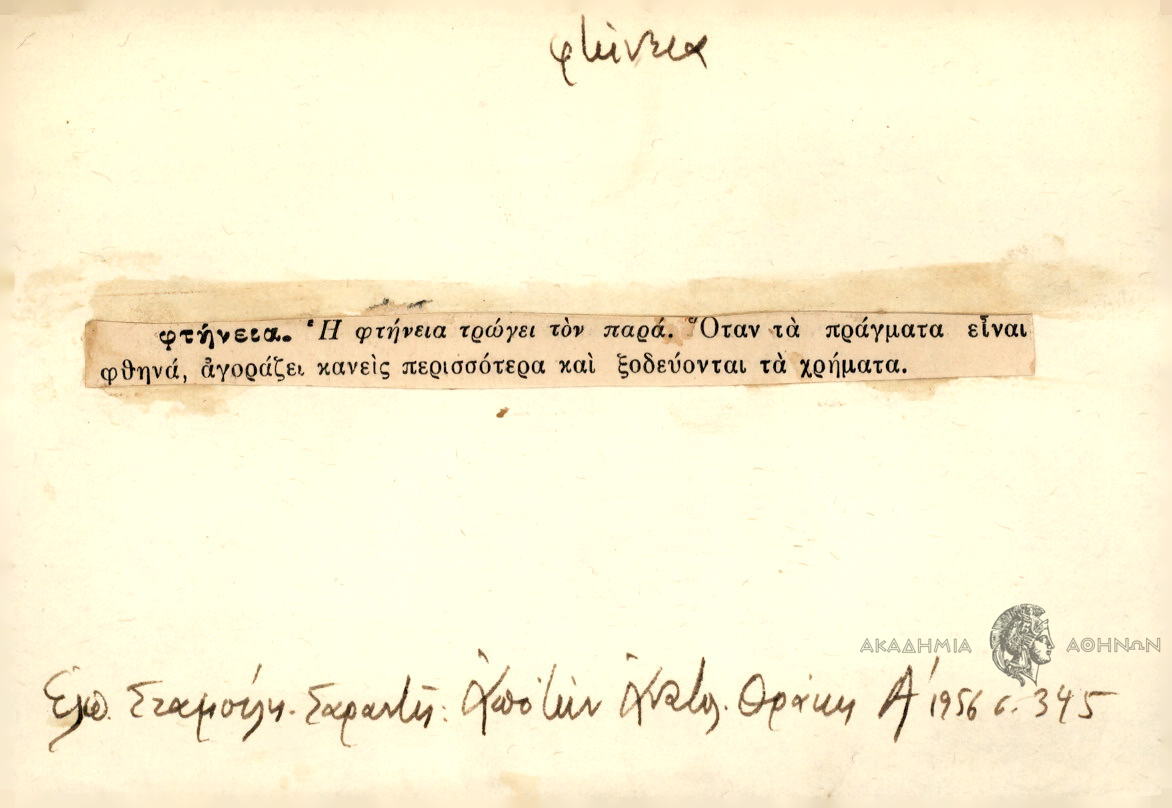 φτήνεια
φτήνεια. Ἡ φτήνεια τρώγει τὸν παρά. Ὅταν τὰ πράγματα εἶναι
φθηνά, ἀγοράζει κανεὶς περισσότερα καὶ ξοδεύονται τὰ χρήματα.
ΑΚΑΔΗΜΙΑ ΑΘΗΝΩΝ
Ἐλπ. Σταμούλη - Σαραντῆ: Ἀπὸ τὴν Ἀνατολ. Θράκη Α' 1956 σ. 345